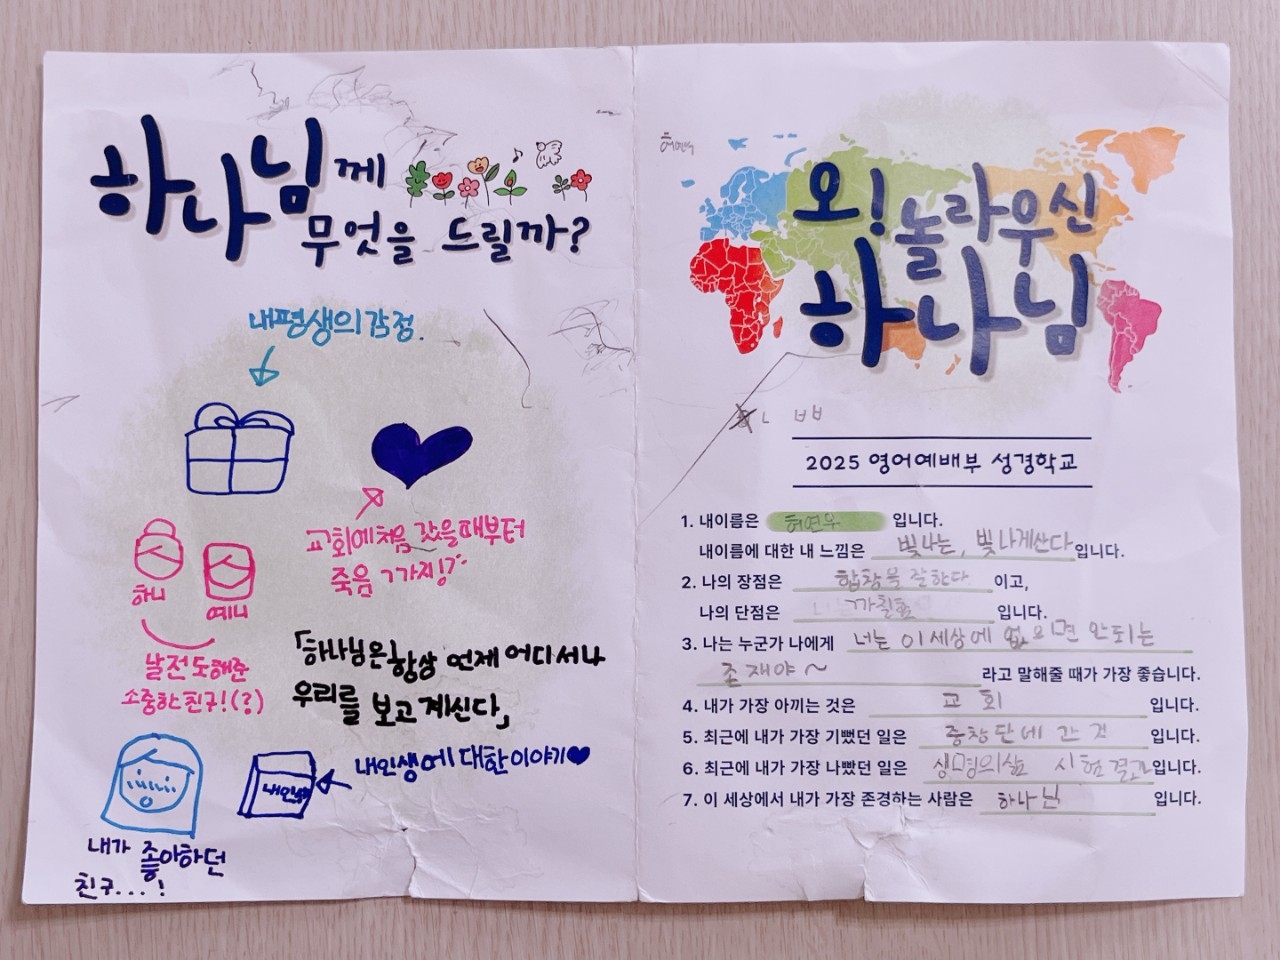 하나님께
무엇을 드릴까?
내평생의감정.
교회에처음 갔을때부터
죽음 까지!
하니
예니
날전도해준
소중한친구!(?)
「하나님은항상 언제 어디서나
우리를 보고계신다」
내인생에 대한이야기
내인생
내가 좋아하던
친구...!
오! 놀라우신
하나님
2025 영어예배부 성경학교
1. 내이름은 허연우 입니다.
내이름에 대한 내 느낌은 빛나는, 빛나게산다 입니다.
2. 나의 장점은 합창을 잘한다 이고,
나의 단점은 까칠함 입니다.
3. 나는 누군가 나에게 너는 이 세상에 없으면 안되는
존재야~ 라고 말해줄 때가 가장 좋습니다.
4. 내가 가장 아끼는 것은 교회 입니다.
5. 최근에 내가 가장 기뻤던 일은 중창단에 간 것 입니다.
6. 최근에 내가 가장 나빴던 일은 생명의삶 시험결과 입니다.
7. 이 세상에서 내가 가장 존경하는 사람은 하나님 입니다.